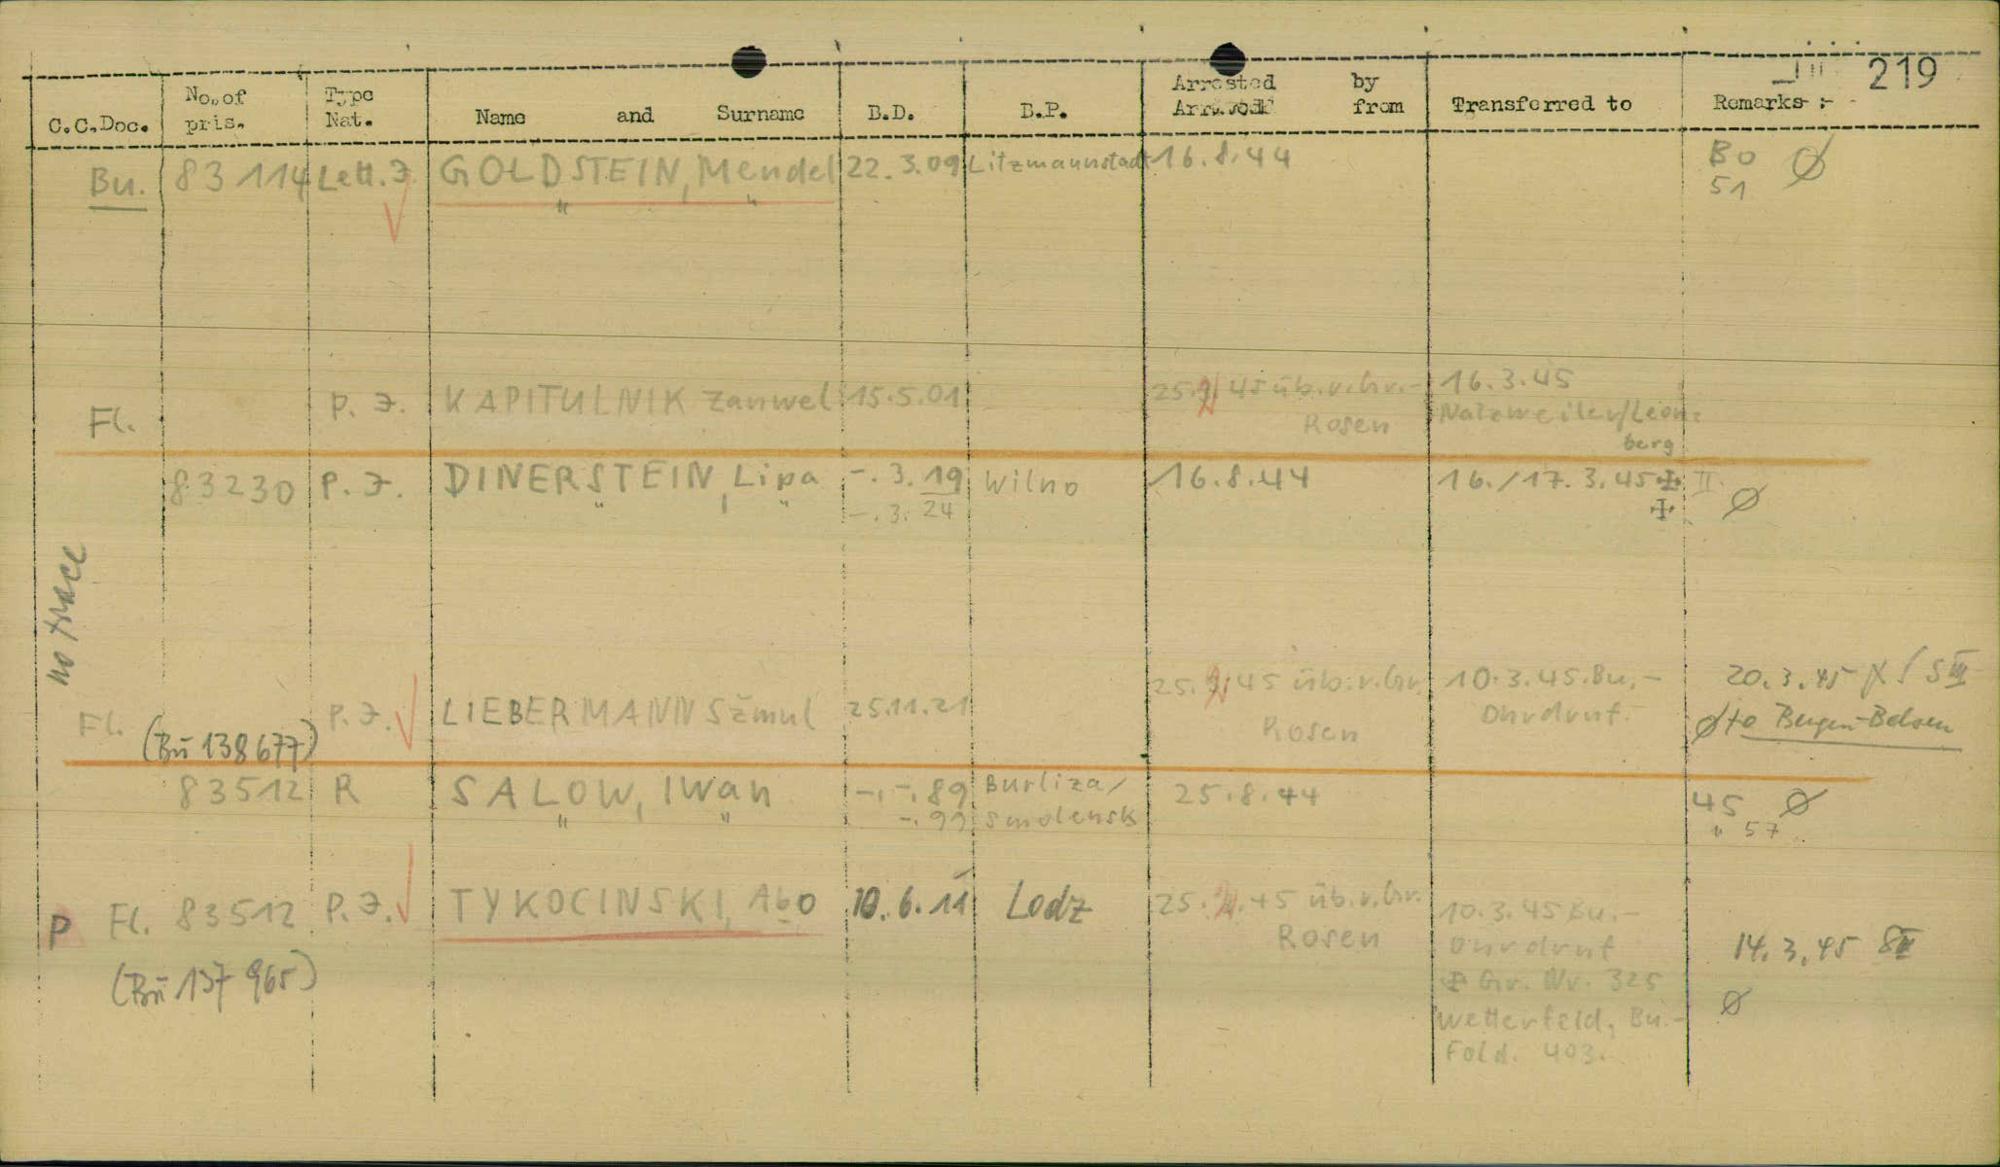 219
C.C.Doc. No. of pris. Type Nat. Name and Surname B.D. B.P. Arrested by from Transferred to Remarks :-
Bu. 83 114 Lett. J. GOLDSTEIN, Mendel 22. 3. 09 Litzmannstadt 16. 8. 44 Bo Ø
51
Fl. P. J. KAPITULNIK Zanwel 15.5.01 25. 2. 45 üb. v. Gr.- 16. 3. 45
Rosen Natzweiler/Leon=
berg
83230 P. J. DINERSTEIN, Lipa -. 3. 19 Wilno 16. 8. 44 16./17. 3. 45 ✠ II Ø
-. 3. 24 ✠
no trace
Fl. P. J. LIEBERMANN Szmul 25.11.21 25. 2. 45 üb. v. Gr. 10. 3. 45. Bu.- 20. 3. 45 S III
(Bu 138677) Rosen Ohrdruf. Ø to Bergen-Belsen
83512 R SALOW, Iwan -. -. 89 Burliza/ 25. 8. 44 45 Ø
-. 99 Smolensk " 57
P Fl. 83512 P. J. TYKOCINSKI, Abo 10. 6. 11 Lodz 25. 2. 45 üb. v. Gr. 10. 3. 45 Bu.-
Rosen Ohrdruf 14. 3. 45 SIII
(Bu 137 965) ✠ Gr. Nr. 325 Ø
Wetterfeld, Bu.-
Fold. 403.